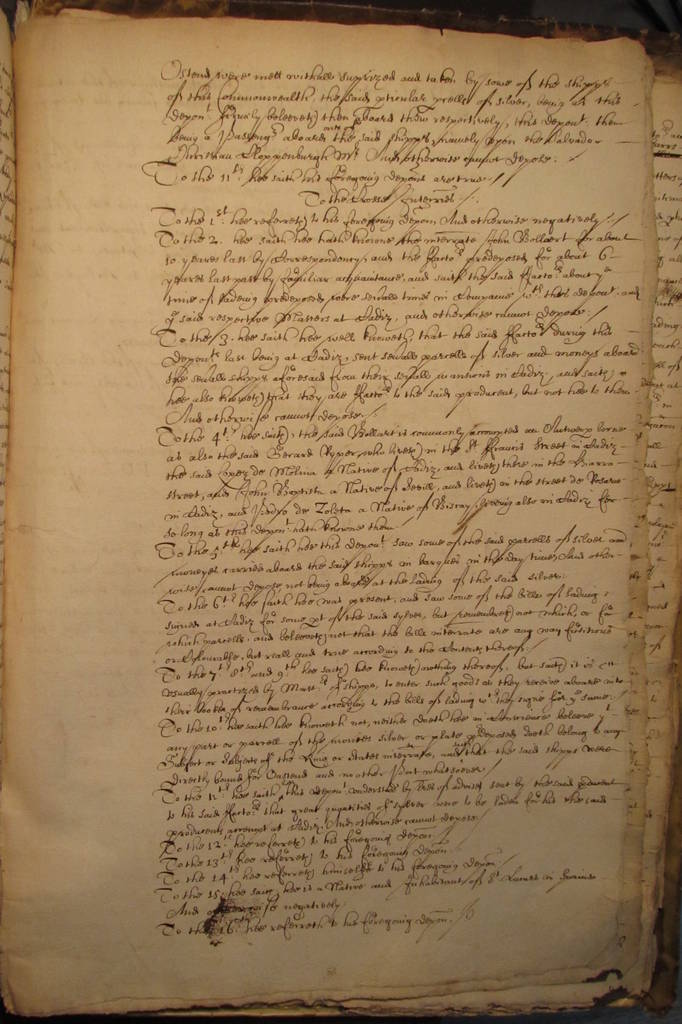 Ostend were mett withall surprized and taken by some of the shipps
of this Commonwealth, the said perticular parcells of silver, being as this
depont. verily beleeveth then aboard them respectively, this deponent then
being a Passenger aboard the said shipps, namely upon the Salvador
Christian Cloppenburgh Mr. And otherwise cannot depose./
To the 11th hee saith his foregoing depons are true./
To the Crosse Interries./
To the 1st. hee referreth to his foregoing depon, And otherwise negatively./
To the 2. hee saith hee hath knowne the interrate John Bollaert for about
10 yeares last by Correspondency, and the factors predeposed for about 6
yeares last past by familiar acquaintance, and saith the said factors about ye
time of ladeing predeposed were severall times in Companie with this deponent and
ye said respective Masters at Cadiz, and otherwise cannot depose./
To the 3. hee saith hee well knoweth, that the said factors during this
deponts last being at Cadiz, sent severall parcells of silver and moneys aboard
the severall shipps aforesaid from their severall mansions in Cadiz, and saith
hee also knoweth that they are factors to the said producent, but not hee to them
And otherwise cannot depose./
To the 4th. hee saith, the said Bollart is commonly accounted an Antwerp borne
as also the said Gerard who liveth in the St Francis Street in Cadiz
the said Lopez de Molina a Native of Cadiz and liveth there in the
street, and John Baptista a Native of and liveth in the street de Rosario
in Cadiz, and Pedro de Zoleta a Native of Biscay liveing also in Cadiz for
so long as this depont. hath knowne them
To the 5th hee saith hee this depont. saw some of the said parcells of silver and
moneyes carried aboard the said shipps in barques in the day time, And other-
wise cannot depose not being aboard at the lading of the said silver.
To the 6th hee saith hee was present, and saw some of the bills of lading
signed at Cadiz for some pt of the said sylver, but remembreth not which, or for
which parcells, and beleeveth not that the bills interrate are any way fictitious
or Colourable, but reall and true according to the Contents thereof./
To the 7th 8th and 9th hee saith hee knoweth nothing thereof, but saith it is
usually practized by Masters of shipps, to enter such goods as they receive aboard into
their bookes of remembrance according to the bills of lading wch they signe for ye same.
To the 10th hee saith hee knoweth not, neither doeth hee in Conscience beleeve yt
any part or parcell of the moneies silver or plate predeposed doeth belong to any
Subject or subjects of the King or states interrate, and that the said shipps were
directly bound for Ostend and no other Port whatsoever./
To the 11th hee saith, this depont. understood by tres of advise sent by the said producent
to his said factors that great quantities of sylver were to be laden for his the said
producents accompt at Cadiz. And otherwise cannot depose
To the 12th. hee referreth to his foregoing depon
To the 13th hee referreth to his foregoing depon
To the 14th hee referreth himselfe to his foregoing depon/
To the 15. hee saith hee is a Native and Inhabitant of St Lucas in
And otherwise negatively./
To the 16. hee referreth to his foregoing depon./